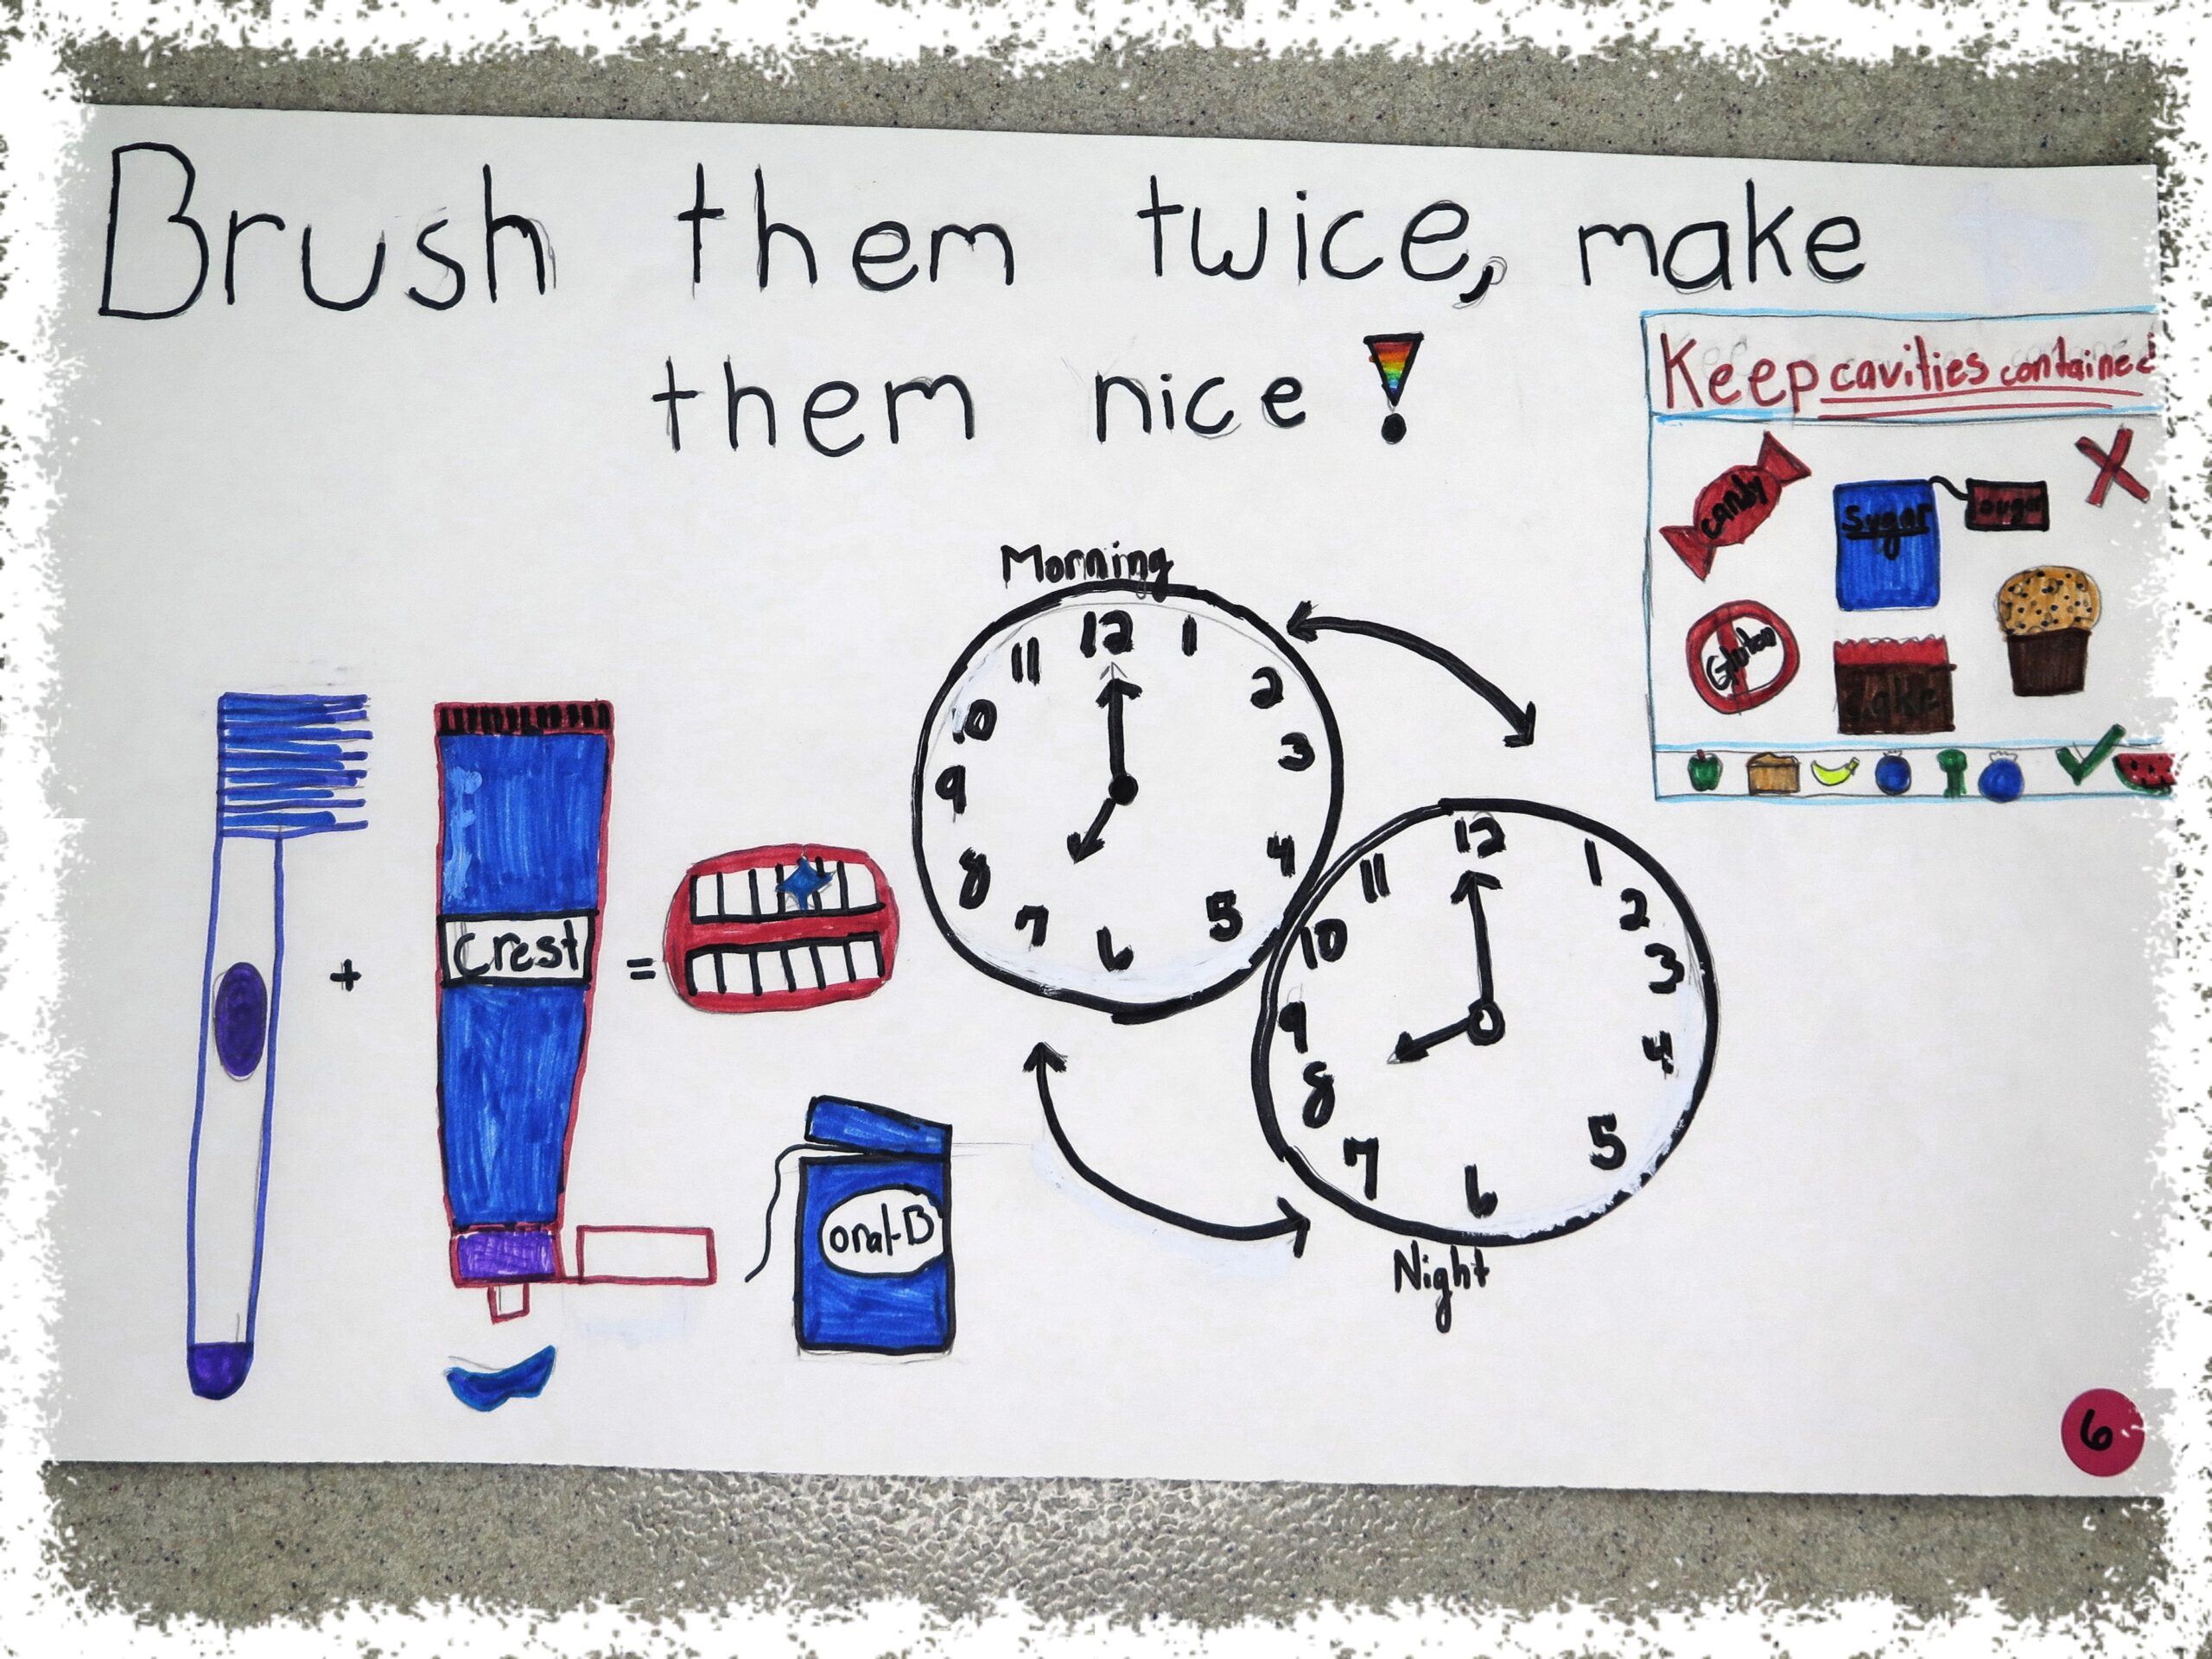 Brush them twice, make
them nice!
Keep cavities contained
candy
Sugar
sugar
Gluten
Cake
Morning
12
1
2
3
4
5
6
7
8
9
10
11
+
Crest
=
12
1
2
3
4
5
6
7
8
9
10
11
Night
oral-B
6